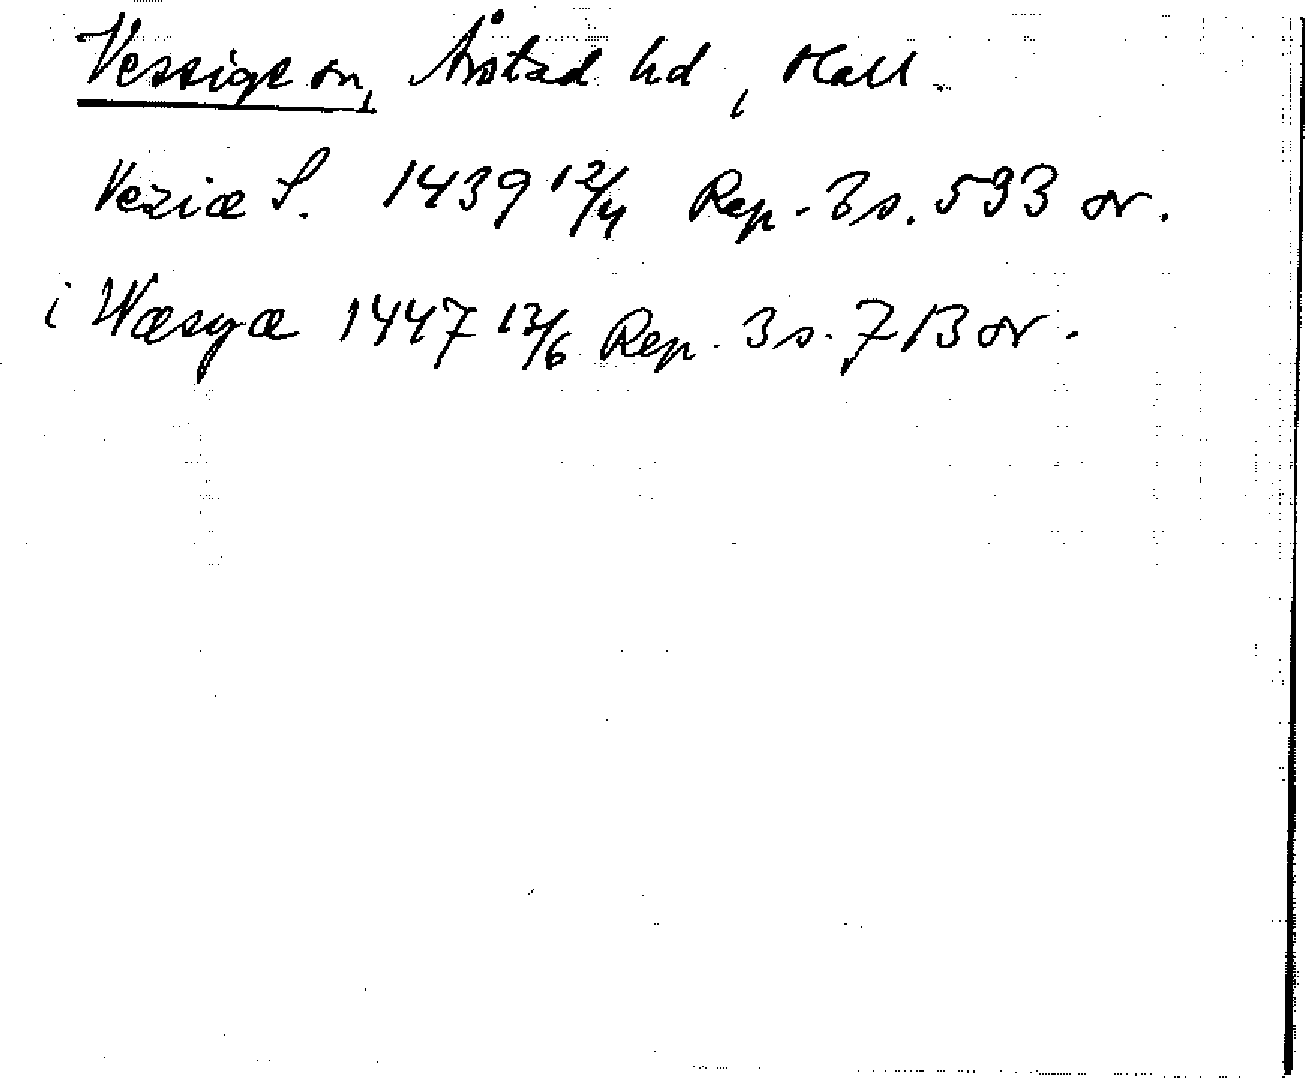 Vessige sn, Årstad hd, Hall.
Veziæ S. 1439 12/4 Rep. 3 s. 593 or.
i Wæsyæ 1447 13/6 Rep. 3 s. 713 or.